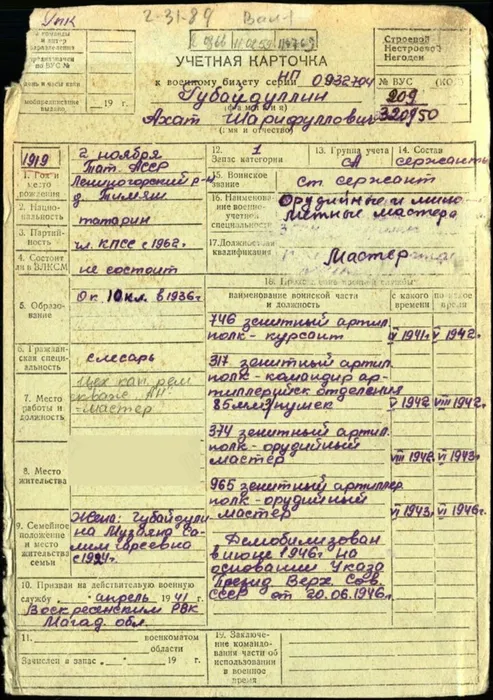 УЧЕТНАЯ КАРТОЧКА
к военному билету серии НП 0932704
Губайдуллин
Ахат Шарифуллович
(имя и отчество)
Строевой
Нестроевой
Негоден
№ ВУС (КОД)
209
320950
19 г.
1919
1. Год и место рождения
2 ноября
Тат. АССР
Лениногорский р-н
д. Тимяш
2. Национальность
татарин
3. Партийность
чл. КПСС с 1962 г.
4. Состоит ли в ВЛКСМ
не состоит
5. Образование
Ок. 10 кл. в 1936 г
6. Гражданская специальность
слесарь
7. Место работы и должность
Цех кап. рем
скваж.
-мастер
8. Место жительства
9. Семейное положение и место жительства семьи
Жена: Губайдулли
на
с 1924 г.
10. Призван на действительную военную
службу апрель 1941 г.
Воскресенским РВК
Магад. обл.
11. военкоматом
области
Зачислен в запас 19 г.
12. Запас категории 1
13. Группа учета СА
14. Состав сержанты
15. Воинское звание ст сержант
16. Наименование военно-учетной специальности
Орудийные и мино
метные мастера
17. Должностная квалификация
Мастер
наименование воинской части и должность
с какого времени
по какое время
746 зенитный артил.
полк - курсант IV 1941 г. V 1942 г.
317 зенитный артил.
полк - командир ар-
тиллерийск отделения
V 1942 г. VIII 1942 г.
374 зенитный артил.
полк - орудийный
мастер VIII 1942 VI 1943 г.
965 зенитный артиллер
полк - орудийный
мастер VI 1943 г. VI 1946 г.
Демобилизован
на
основании Указа
Презид Верх. Сов.
СССР от 20.06.1946 г.
19. Заключение командования части об использовании в военное время